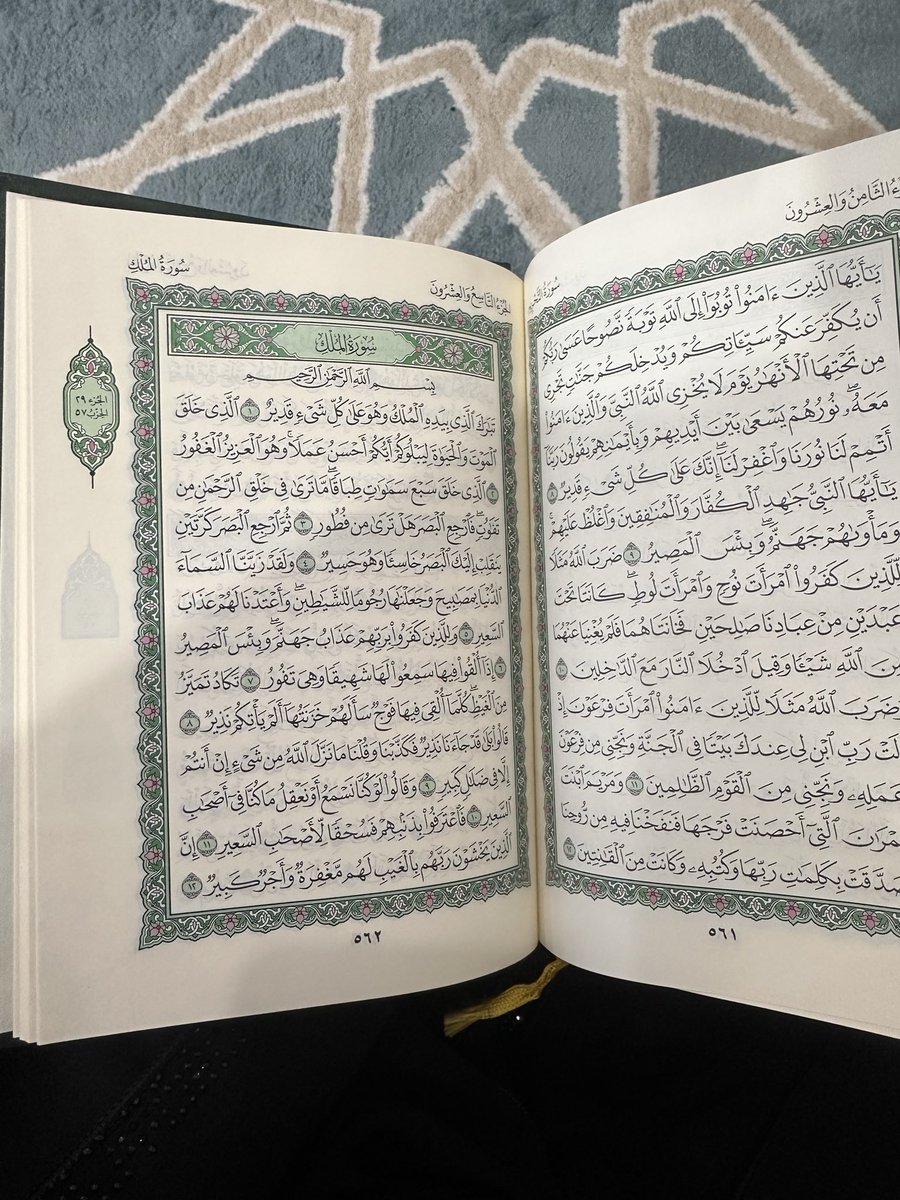 ءُ الثَّامِنُ وَالْعِشْرُونَ
يَٰٓأَيُّهَا ٱلَّذِينَ ءَامَنُوا۟ تُوبُوٓا۟ إِلَى ٱللَّهِ تَوْبَةً نَّصُوحًا عَسَىٰ رَبُّكُمْ
أَن يُكَفِّرَ عَنكُمْ سَيِّـَٔاتِكُمْ وَيُدْخِلَكُمْ جَنَّٰتٍ تَجْرِى
مِن تَحْتِهَا ٱلْأَنْهَٰرُ يَوْمَ لَا يُخْزِى ٱللَّهُ ٱلنَّبِىَّ وَٱلَّذِينَ ءَامَنُوا۟
مَعَهُۥ ۖ نُورُهُمْ يَسْعَىٰ بَيْنَ أَيْدِيهِمْ وَبِأَيْمَٰنِهِمْ يَقُولُونَ رَبَّنَآ
أَتْمِمْ لَنَا نُورَنَا وَٱغْفِرْ لَنَآ ۖ إِنَّكَ عَلَىٰ كُلِّ شَىْءٍ قَدِيرٌ ٨
يَٰٓأَيُّهَا ٱلنَّبِىُّ جَٰهِدِ ٱلْكُفَّارَ وَٱلْمُنَٰفِقِينَ وَٱغْلُظْ عَلَيْهِمْ ۚ
وَمَأْوَىٰهُمْ جَهَنَّمُ ۖ وَبِئْسَ ٱلْمَصِيرُ ٩ ضَرَبَ ٱللَّهُ مَثَلًا
لِّلَّذِينَ كَفَرُوا۟ ٱمْرَأَتَ نُوحٍ وَٱمْرَأَتَ لُوطٍ ۖ كَانَتَا تَحْتَ
عَبْدَيْنِ مِنْ عِبَادِنَا صَٰلِحَيْنِ فَخَانَتَاهُمَا فَلَمْ يُغْنِيَا عَنْهُمَا
مِنَ ٱللَّهِ شَيْـًٔا وَقِيلَ ٱدْخُلَا ٱلنَّارَ مَعَ ٱلدَّٰخِلِينَ ١٠
وَضَرَبَ ٱللَّهُ مَثَلًا لِّلَّذِينَ ءَامَنُوا۟ ٱمْرَأَتَ فِرْعَوْنَ إِذْ
قَالَتْ رَبِّ ٱبْنِ لِى عِندَكَ بَيْتًا فِى ٱلْجَنَّةِ وَنَجِّنِى مِن فِرْعَوْنَ
وَعَمَلِهِۦ وَنَجِّنِى مِنَ ٱلْقَوْمِ ٱلظَّٰلِمِينَ ١١ وَمَرْيَمَ ٱبْنَتَ
عِمْرَٰنَ ٱلَّتِىٓ أَحْصَنَتْ فَرْجَهَا فَنَفَخْنَا فِيهِ مِن رُّوحِنَا
وَصَدَّقَتْ بِكَلِمَٰتِ رَبِّهَا وَكُتُبِهِۦ وَكَانَتْ مِنَ ٱلْقَٰنِتِينَ ١٢
٥٦١
الجُزْءُ التَّاسِعُ وَالْعِشْرُونَ
سُورَةُ المُلْكِ
سُورَةُ المُلْكِ
بِسْمِ ٱللَّهِ ٱلرَّحْمَٰنِ ٱلرَّحِيمِ
تَبَٰرَكَ ٱلَّذِى بِيَدِهِ ٱلْمُلْكُ وَهُوَ عَلَىٰ كُلِّ شَىْءٍ قَدِيرٌ ١ ٱلَّذِى خَلَقَ
ٱلْمَوْتَ وَٱلْحَيَوٰةَ لِيَبْلُوَكُمْ أَيُّكُمْ أَحْسَنُ عَمَلًا ۚ وَهُوَ ٱلْعَزِيزُ ٱلْغَفُورُ
٢ ٱلَّذِى خَلَقَ سَبْعَ سَمَٰوَٰتٍ طِبَاقًا ۖ مَّا تَرَىٰ فِى خَلْقِ ٱلرَّحْمَٰنِ مِن
تَفَٰوُتٍ ۖ فَٱرْجِعِ ٱلْبَصَرَ هَلْ تَرَىٰ مِن فُطُورٍ ٣ ثُمَّ ٱرْجِعِ ٱلْبَصَرَ كَرَّتَيْنِ
يَنقَلِبْ إِلَيْكَ ٱلْبَصَرُ خَاسِئًا وَهُوَ حَسِيرٌ ٤ وَلَقَدْ زَيَّنَّا ٱلسَّمَآءَ
ٱلدُّنْيَا بِمَصَٰبِيحَ وَجَعَلْنَٰهَا رُجُومًا لِّلشَّيَٰطِينِ ۖ وَأَعْتَدْنَا لَهُمْ عَذَابَ
ٱلسَّعِيرِ ٥ وَلِلَّذِينَ كَفَرُوا۟ بِرَبِّهِمْ عَذَابُ جَهَنَّمَ ۖ وَبِئْسَ ٱلْمَصِيرُ
٦ إِذَآ أُلْقُوا۟ فِيهَا سَمِعُوا۟ لَهَا شَهِيقًا وَهِىَ تَفُورُ ٧ تَكَادُ تَمَيَّزُ
مِنَ ٱلْغَيْظِ ۖ كُلَّمَآ أُلْقِىَ فِيهَا فَوْجٌ سَأَلَهُمْ خَزَنَتُهَآ أَلَمْ يَأْتِكُمْ نَذِيرٌ ٨
قَالُوا۟ بَلَىٰ قَدْ جَآءَنَا نَذِيرٌ فَكَذَّبْنَا وَقُلْنَا مَا نَزَّلَ ٱللَّهُ مِن شَىْءٍ إِنْ أَنتُمْ
إِلَّا فِى ضَلَٰلٍ كَبِيرٍ ٩ وَقَالُوا۟ لَوْ كُنَّا نَسْمَعُ أَوْ نَعْقِلُ مَا كُنَّا فِىٓ أَصْحَٰبِ
ٱلسَّعِيرِ ١٠ فَٱعْتَرَفُوا۟ بِذَنۢبِهِمْ فَسُحْقًا لِّأَصْحَٰبِ ٱلسَّعِيرِ ١١ إِنَّ
ٱلَّذِينَ يَخْشَوْنَ رَبَّهُم بِٱلْغَيْبِ لَهُم مَّغْفِرَةٌ وَأَجْرٌ كَبِيرٌ ١٢
الجزء ٢٩
الحزب ٥٧
٥٦٢